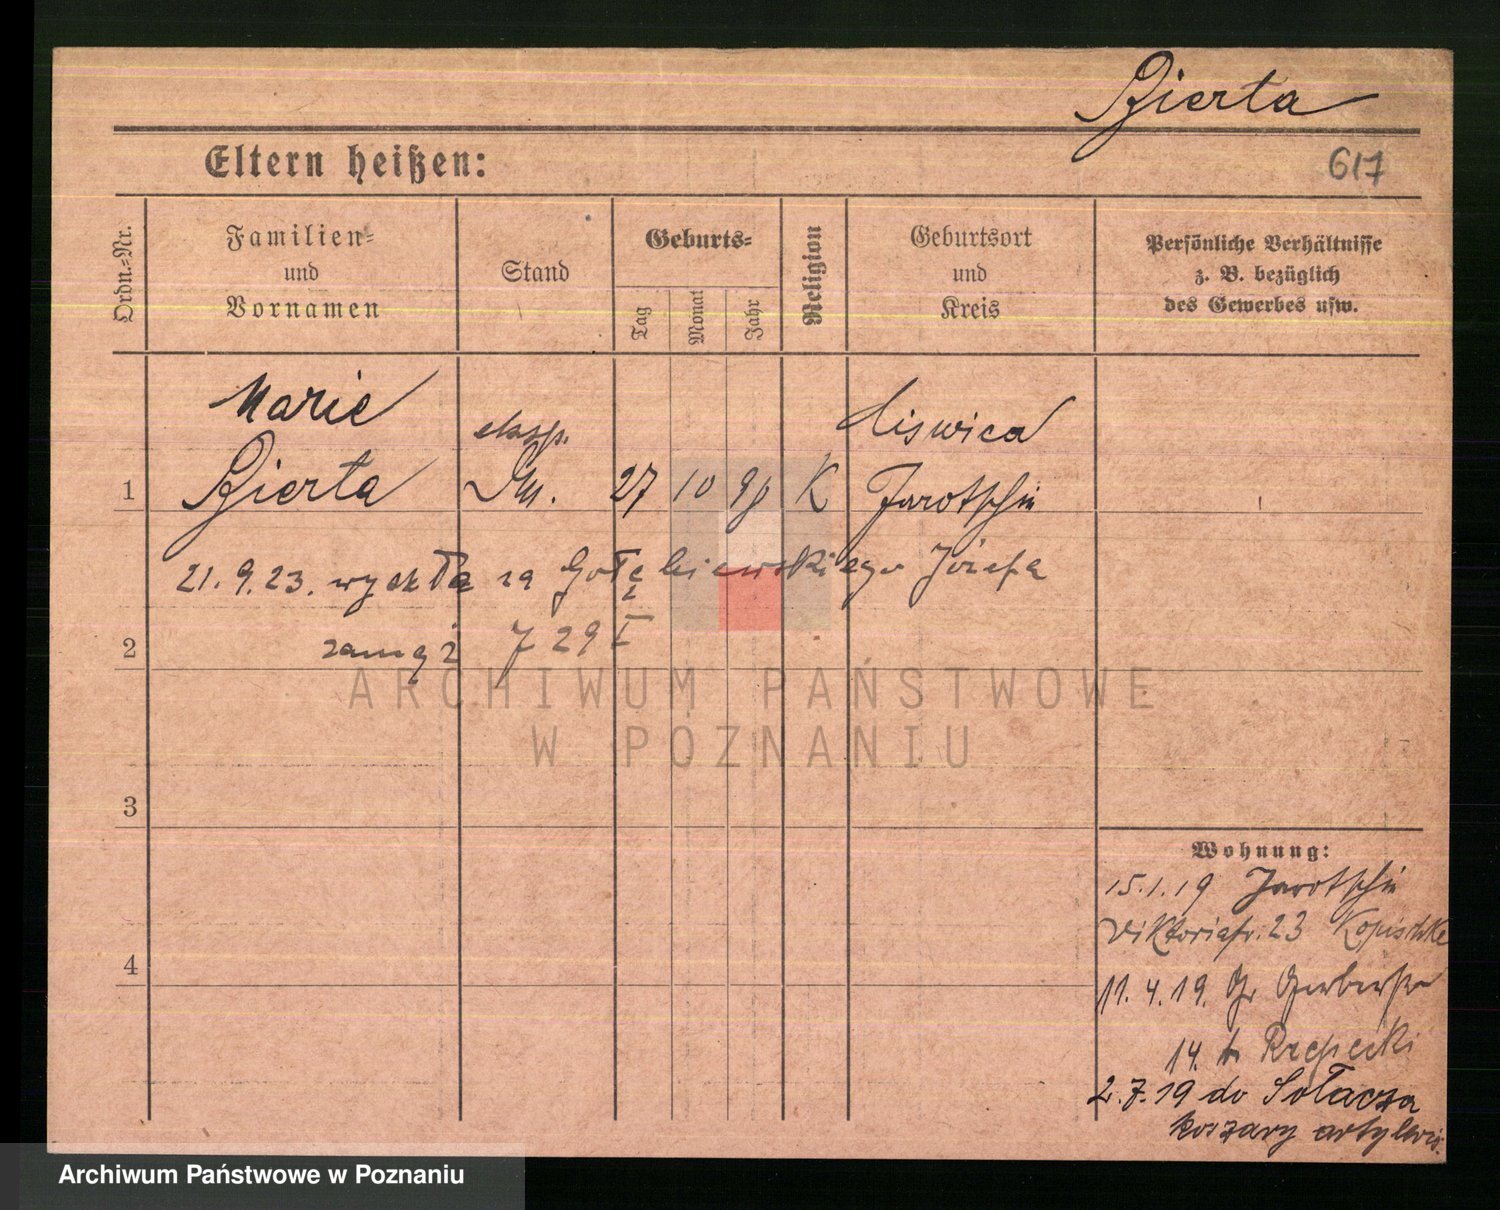 Bierta
Eltern heißen:
617
Ordn.-Nr.
Familien-
und
Vornamen
Stand
Geburts-
Tag
Monat
Jahr
Religion
Geburtsort
und
Kreis
Persönliche Verhältnisse
z. B. bezüglich
des Gewerbes usw.
Marie
Bierta
eksp.
27 10 90 K
Jarotschin
1
21.9.23. wyszła za Gołębiewskiego Józefa
zamąż 7 29 I
2
3
4
ARCHIWUM PAŃSTWOWE
W POZNANIU
Wohnung:
15.1.19 Jarotschin
Viktoriastr. 23 Kopischke
11.4.19. Gr Gerberstr
14. b Rzepecki
2.7.19 do Sołacza
koszary artyleris.
Archiwum Państwowe w Poznaniu